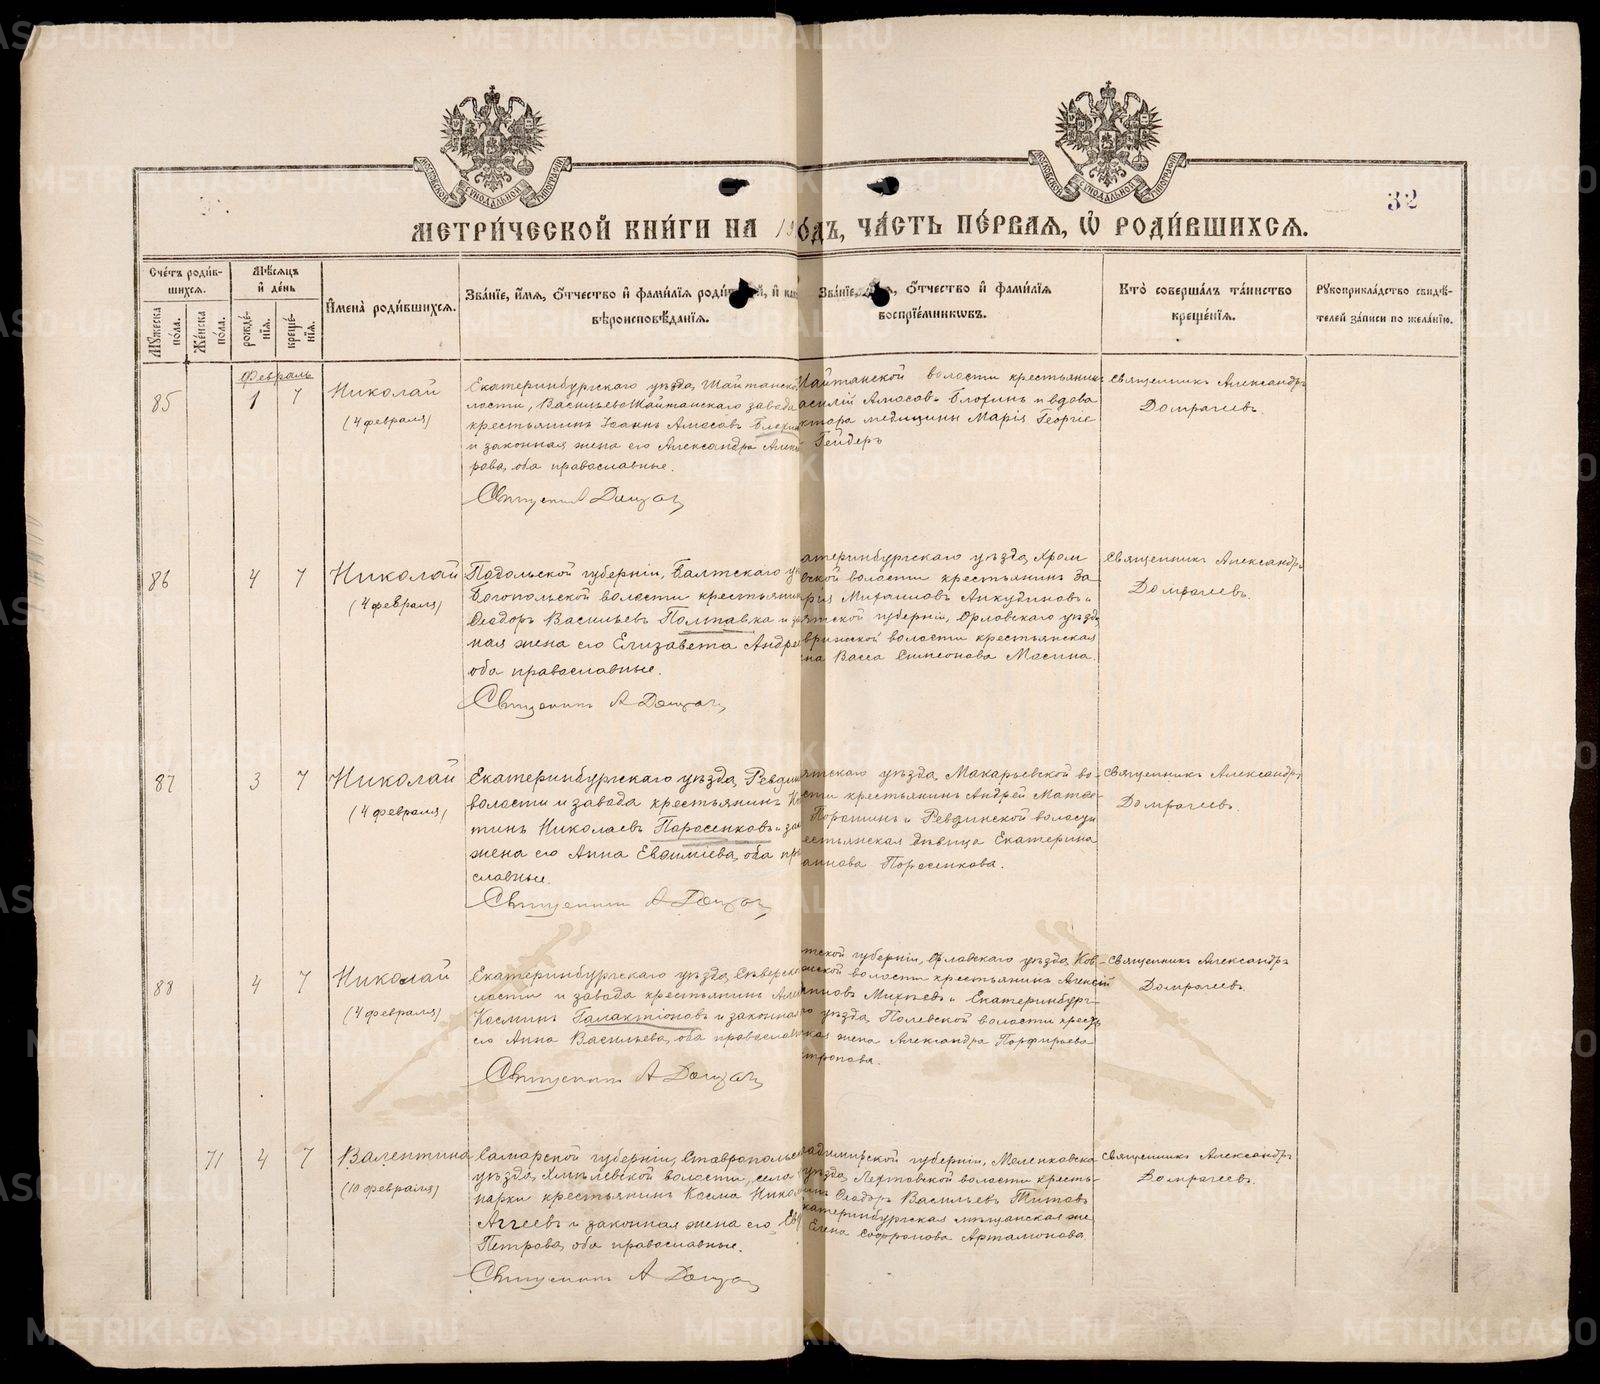 32
МЕТРИ́ЧЕСКОЙ КНИ́ГИ НА 19 ГО́ДЪ, ЧА́СТЬ ПЕ́РВАЯ, Ѡ РОДИ́ВШИХСЯ.
Сче́тъ роди́в-
шихся.
Мꙋжеска по́ла.
Же́нска по́ла.
Мѣ́сяцъ
и де́нь
рожде́-
нїя.
креще́-
нїя.
И҆мена̀ роди́вшихся.
Зва́нїе, и҆́мя, о҆́тчество и҆ фами́лїя роди́телей, и҆ како
вѣроисповѣ́данїя.
Зва́нїе, и҆́мя, о҆́тчество и҆ фами́лїя
воспрїе́мниковъ.
Кто̀ соверша́лъ та́инство
креще́нїя.
Рꙋкоприкла́дство свидѣ́-
телей за́писи по жела́нїю.
Февраль
85
1
7
Николай
(4 февраля)
Екатеринбургскаго уѣзда, Шайтанско
лости, Васильево Шайтанскаго завода
крестьянинъ Іоаннъ Амосовъ Блохин
и законная жена его Александра Алек
рова, оба православные.
Шайтанской волости крестьянинъ
асилій Амосовъ Блохинъ и вдова
ктора медицины Марія Георгіе
Гейдеръ
Священникъ Александръ
Домрачевъ.
86
4
7
Николай
(4 февраля)
Подольской губерніи, Балтскаго у
Богопольской волости крестьянин
Ѳеодоръ Васильевъ Полтавка и за
ная жена его Елизавета Андре
оба православные.
атеринбургскаго уѣзда, Хром
вской волости крестьянинъ За
рія Михаиловъ Анкудиновъ и
ятской губерніи, Орловскаго уѣзда,
волости крестьянская
на Васса Симеонова Мосина.
Священникъ Александръ
Домрачевъ.
87
3
7
Николай
(4 февраля)
Екатеринбургскаго уѣзда, Ревдин
волости и завода крестьянинъ Ко
тинъ Николаевъ Поросенковъ и зак
жена его Анна Евфиміева, оба пра
славные.
ятскаго уѣзда, Макарьевской во-
сти крестьянинъ Андрей Матѳе-
Порошинъ и Ревдинской волости
естьянская дѣвица Екатерина
аннова Поросенкова.
Священникъ Александръ
Домрачевъ.
88
4
7
Николай
(4 февраля)
Екатеринбургскаго уѣзда, Сѣверско
лости и завода крестьянинъ Але
Косминъ Галактіоновъ и законная
его Анна Васильева, оба православн
тской губерніи, Орловскаго уѣзда, Ков-
нской волости крестьянинъ Алексій
Михѣевъ и Екатеринбург-
го уѣзда, Полевской волости кресть
ская жена Александра Порфирьева
Священникъ Александръ
Домрачевъ.
71
4
7
Валентина
(10 февраля)
Самарской губерніи, Ставропольс
уѣзда, Хмѣлевской волости, села
крестьянинъ Косма Никол
Агѣевъ и законная жена его Ев
Петрова, оба православные.
адимирской губерніи, Меленковска
уѣзда, Ляхтовской волости кресть-
инъ Ѳеодоръ Васильевъ Титовъ
катеринбургская мѣщанская же
Елена Софронова Артамонова
Священникъ Александръ
Домрачевъ.
METRIKI.GASO-URAL.RU